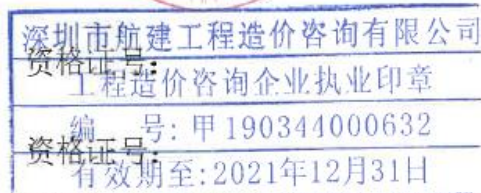 深圳市航建工程造价咨询有限公司
资格证号:
工程造价咨询企业执业印章
编 号:甲190344000632
资格证号:
有效期至:2021年12月31日